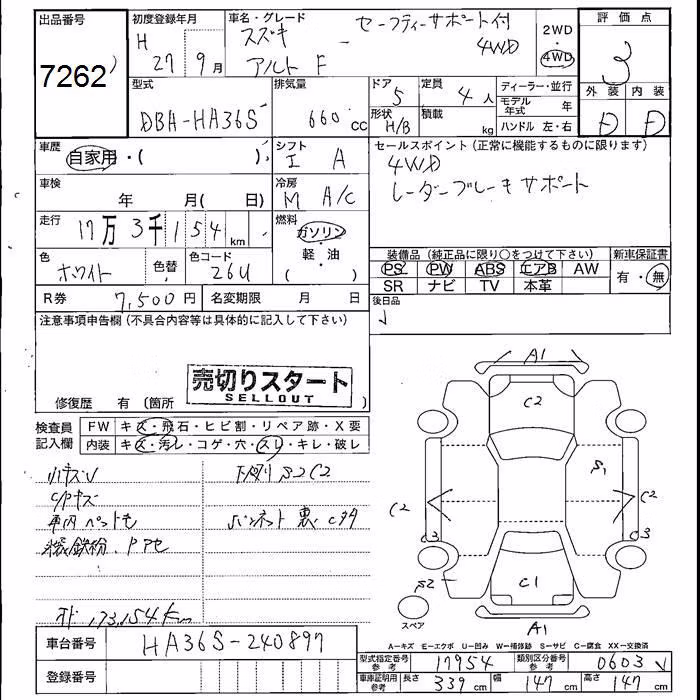 出品番号 初度登録年月 車名・グレード セーフティーサポート付 2WD 評価点
7262 H 27 9月 スズキ アルト F 4WD 4WD 3
型式 排気量 ドア 定員 ディーラー・並行 外装 内装
DBA-HA36S 660 cc 5 4人 モデル年式 年 D D
形状 積載 ハンドル 左・右
H/B kg
車歴 自家用・( ) シフト I A セールスポイント(正常に機能するものに限ります)
4WD
レーダーブレーキサポート
車検 年 月( 日) 冷房 M A/C
走行 17万3千154km 燃料 ガソリン
軽・油
( )
装備品(純正品に限り○をつけて下さい) 新車保証書
色 ホワイト 色替 色コード 26U PS PW ABS エアB AW 有・無
SR ナビ TV 本革
R券 7,500円 名変期限 月 日 後日品
注意事項申告欄(不具合内容等は具体的に記入して下さい)
売切りスタート
SELLOUT
修復歴 有(箇所 )
検査員記入欄 FW キズ・飛石・ヒビ割・リペア跡・X要
内装 キズ・汚レ・コゲ・穴・スレ・キレ・破レ
小キズ
C/Pキズ
車内ペットも
鉄粉
173,154km
A1
C2
S1
C2 C2
C3 C3
S2
C1
A1
スペア
A-キズ E-エクボ U-凹み W-補修跡 S-サビ C-腐食 XX-交換済
車台番号 HA36S-240897
登録番号
型式指定番号参考 17954 類別区分番号参考 0603
車庫証明用参考 長さ 339cm 幅 147cm 高さ 147cm